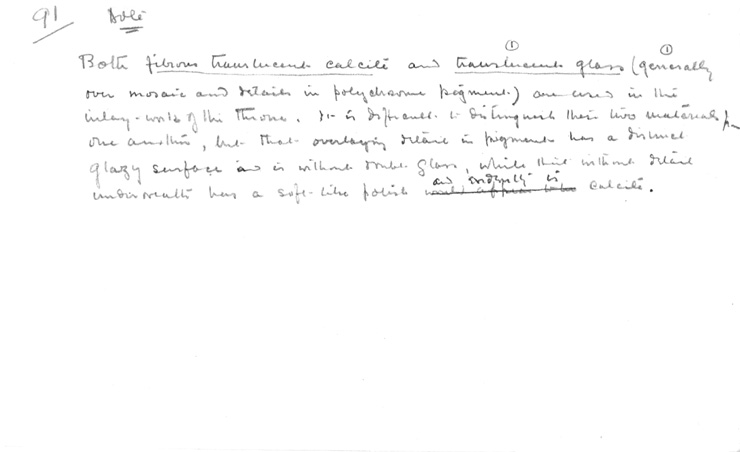 91 Note
Both fibrous translucent calcite and translucent① glass (generally①
over mosaic and details in polychrome pigment) are used in the
inlay-work of the throne. It is difficult to distinguish these two materials fr
one another, but that overlaying detail in pigment has a distinct
glazy surface and is without doubt glass, while that without detail
underneath has a soft-like polish and evidently is calcite.